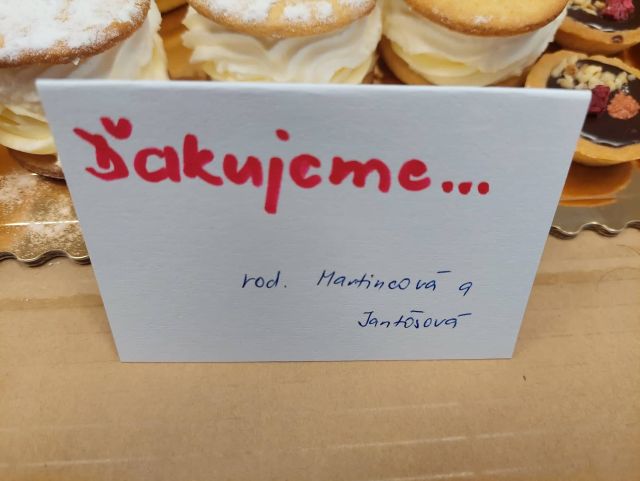 Ďakujeme...
rod. Martincová a
Jantošová